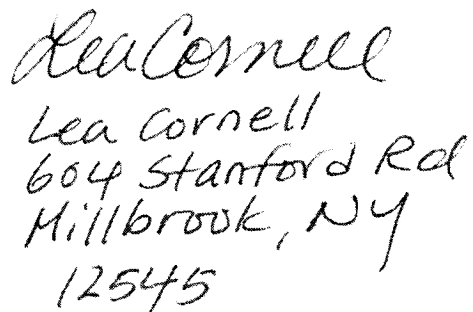 Lea Cornell
Lea Cornell
604 Stanford Rd
Millbrook, NY
12545